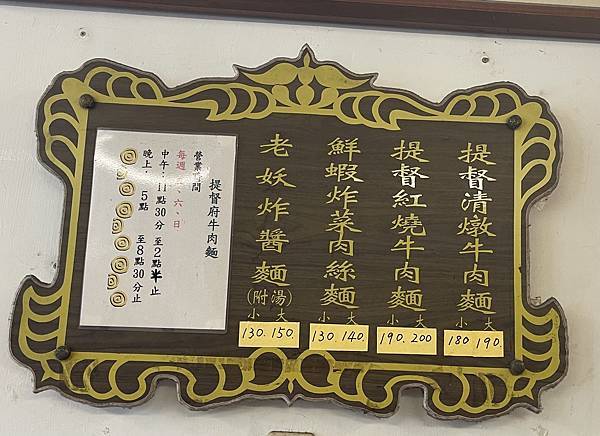 提督清燉牛肉麵
小 大
180 190.
提督紅燒牛肉麵
小 大
190. 200
鮮蝦炸菜肉絲麵
小 大
130. 140.
老妖炸醬麵(附湯)
小 大
130. 150.
提督府牛肉麵
營業時間
每週、六、日
中午:11點30分 至2點半止
晚上:5點 至8點30分止